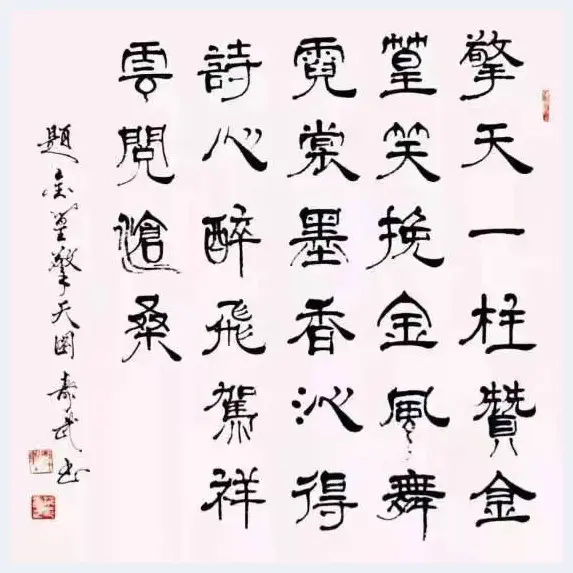 擎天一柱贊金
篁笑挽金風舞
霓裳墨香沁得
詩心醉飛駕祥
雲閱滄桑
題金篁擎天圖 壽武書